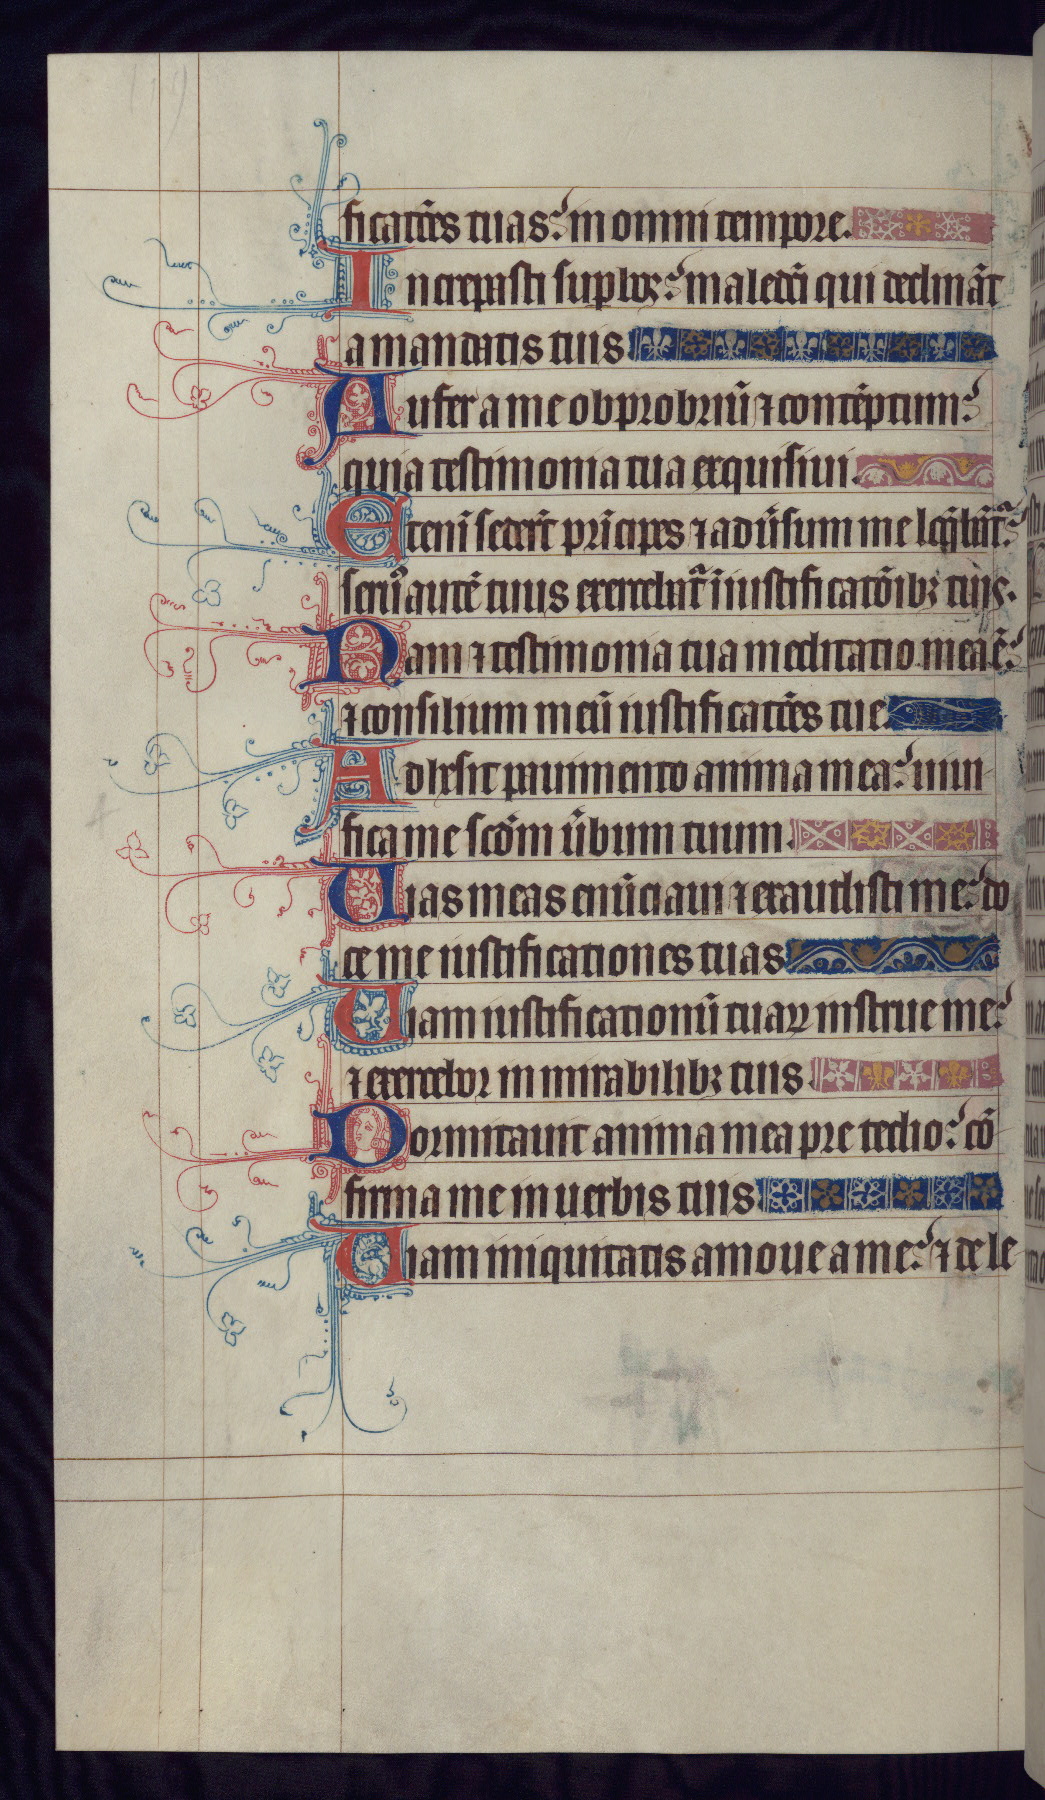 ficatōēs tuas: in omni tempore.
Increpasti suꝑbos: maledc̄i qui declināt
a mandatis tuis
Aufer a me obprobriū ⁊ contēptum:
quia testimonia tua exquisiui.
Eteni sederūt prīcipes ⁊ aduˀsum me loq̄bāt᷑:
seruꝰ autē tuus exercebat᷑ ī iustificatōibꝫ tuis.
Nam ⁊ testimonia tua meditatio mea ē:
⁊ consilium meū iustificatōēs tue
Adhesit pauimento anima mea: uiui-
fica me scd̄m ūbum tuum.
Uias meas enūciaui ⁊ exaudisti me: do
ce me iustificationes tuas
Uiam iustificationū tuaꝝ instrue me:
⁊ exercebor in mirabilibꝫ tuis
Dormitauit anima mea pre tedio: cō
firma me in uerbis tuis
Uiam iniquitatis amoue a me: ⁊ de le